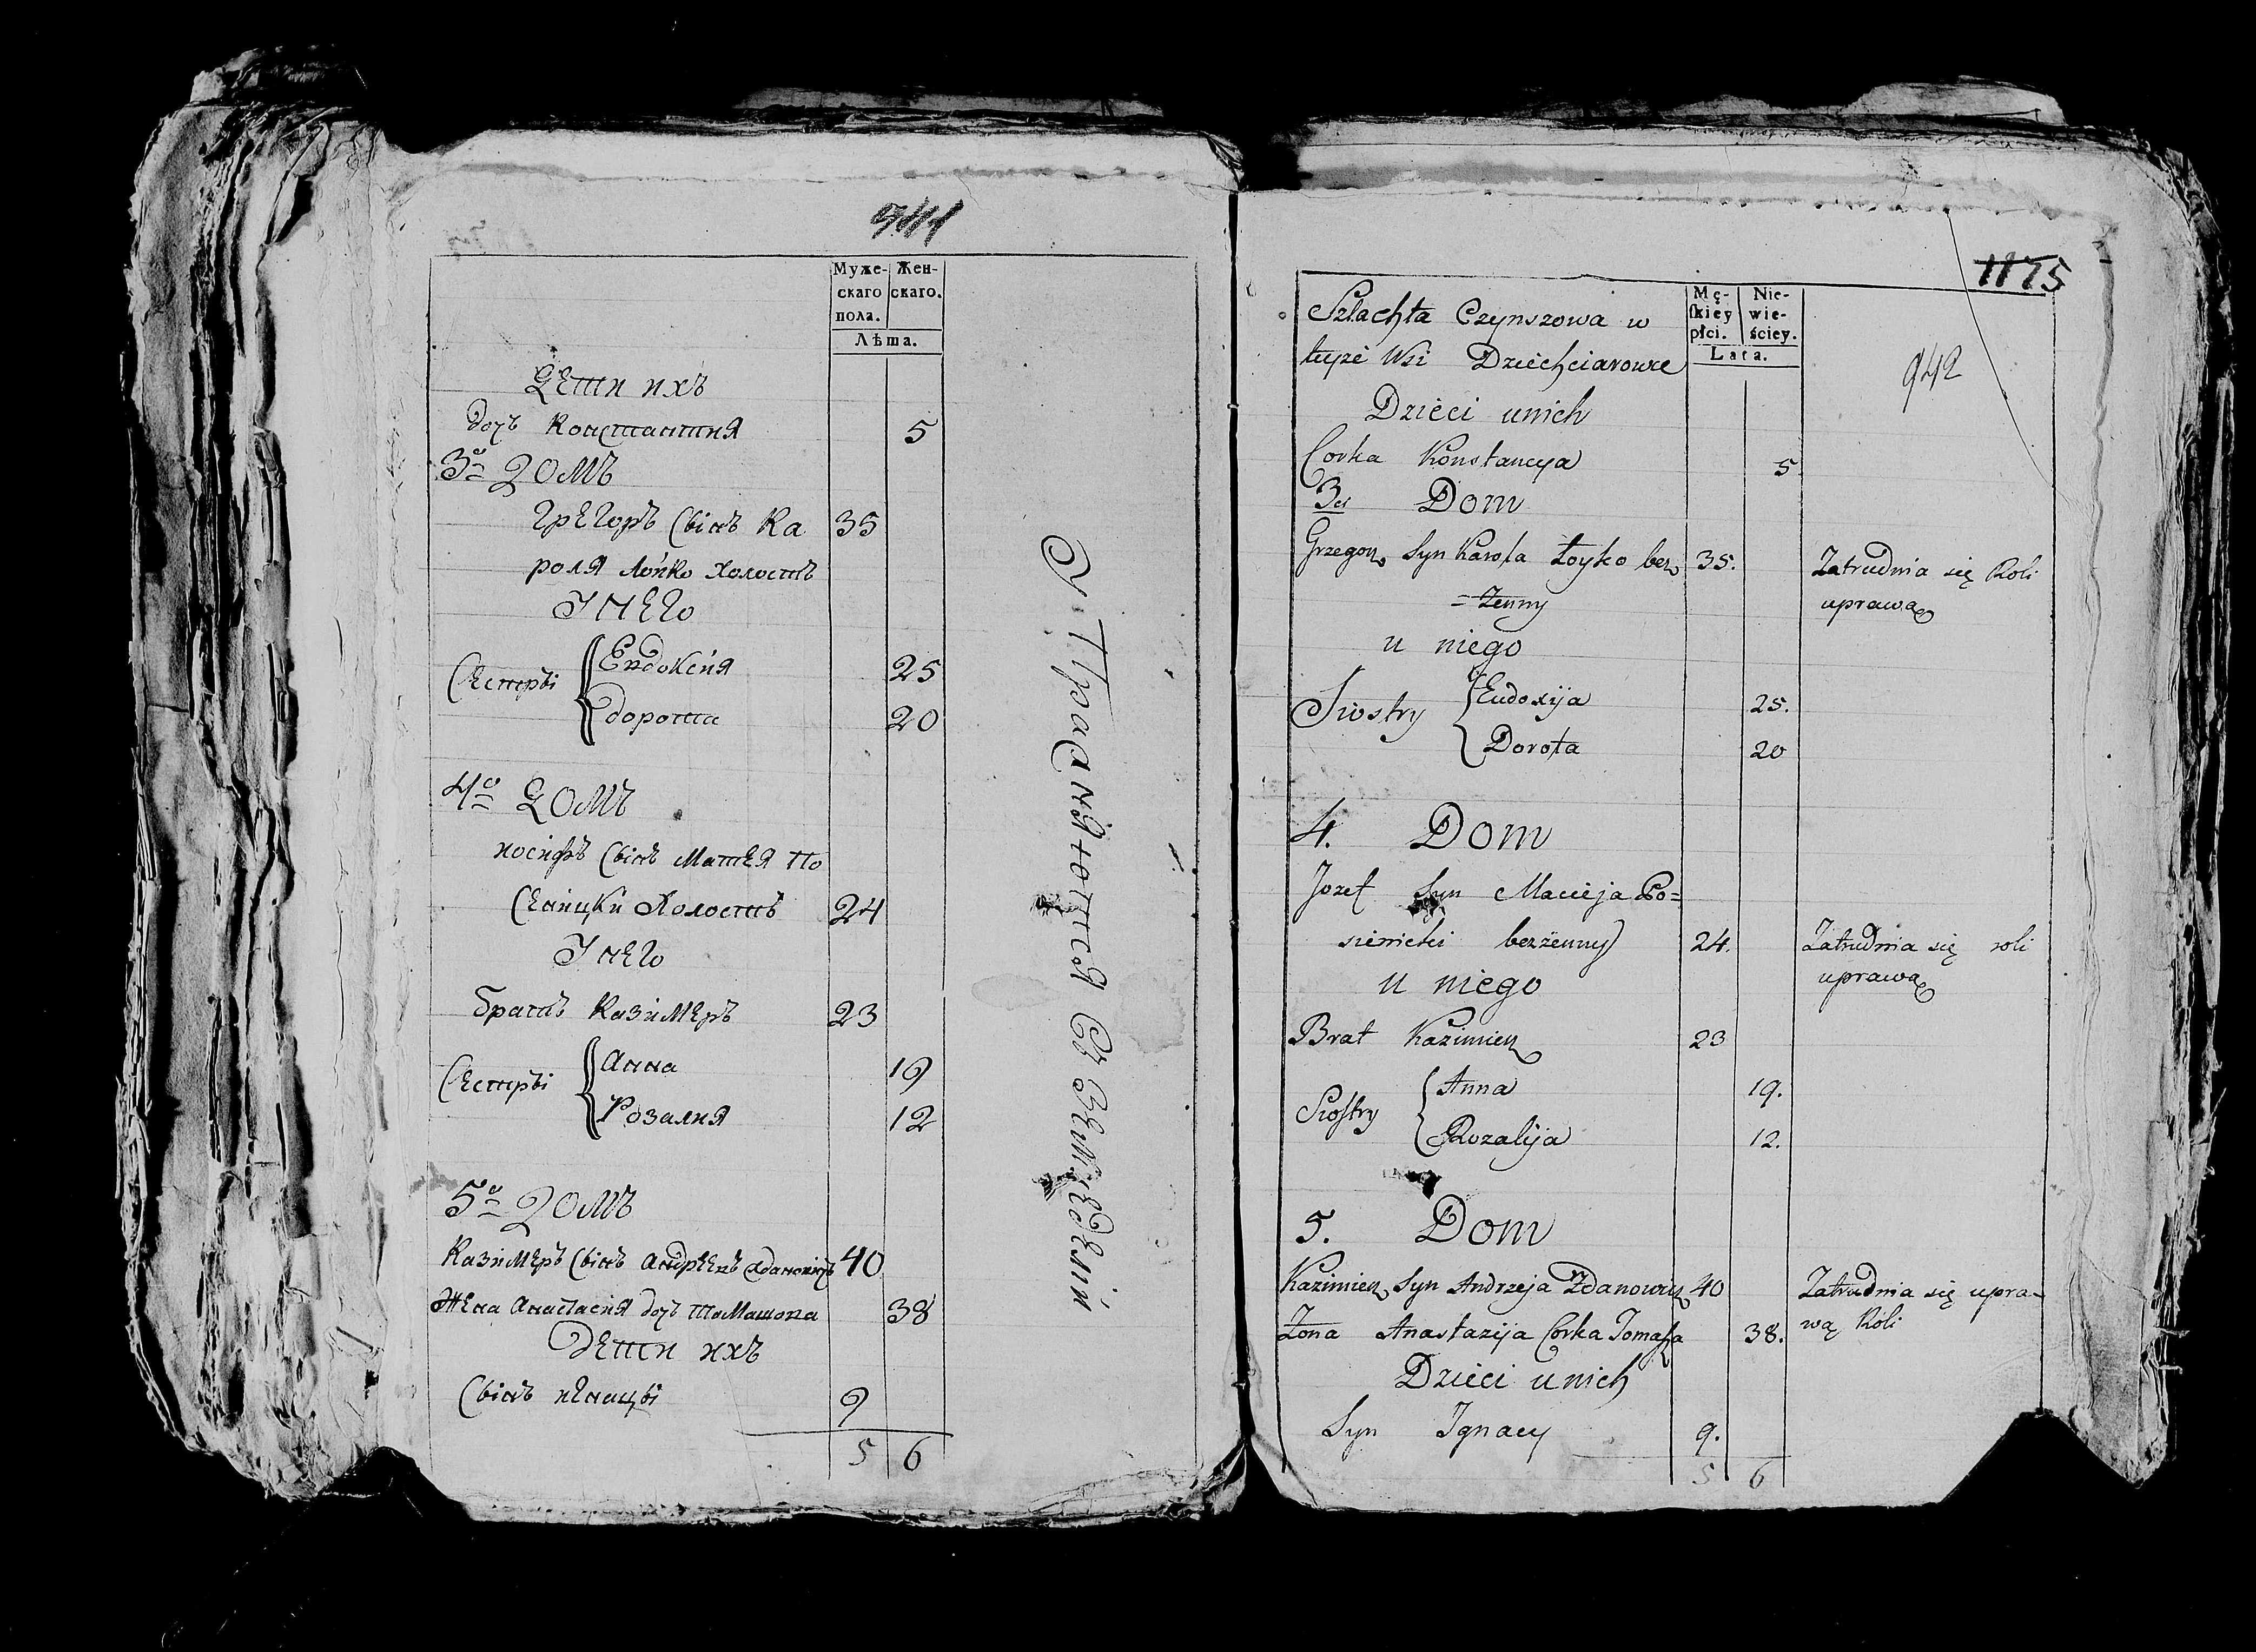 Муже-
скаго
пола.
Жен-
скаго.
Лѣта.
Дети ихъ
дочъ Констанция 5
3е домъ
Грегоръ Сынъ Ка 35
роля Лойко Холостъ
У него
Сестры
Евдоксия 25
дорота 20
4е домъ
иосифъ Сынъ Матея По
Сеницки Холостъ 24
У него
братъ Казимеръ 23
Сестры
Анна 19
Розалия 12
5е домъ
Казимеръ Сынъ Андреевъ Ждановичъ 40
Жена Анастасия дочъ Томашова 38
дети ихъ
Сынъ игнацы 9
5 6
1175
942
Szlachta Czynszowa w
teyże Wsi Dziechciarowce
Mę-
skiey
płci.
Nie-
wie-
ściey.
Lata.
Dzieci u nich
Corka Konstancya 5
3ci Dom
Grzegorz Syn Karola Łoyko bez 35. Zatrudnia się Roli
=Żenny uprawą
u niego
Siostry
Eudoxija 25.
Dorota 20
4. Dom
Jozef Syn Macieja Po=
sienicki bezżenny 24. Zatrudnia się roli
u niego uprawą
Brat Kazimierz 23
Siostry
Anna 19.
Rozalija 12.
5. Dom
Kazimierz Syn Andrzeja Zdanowicz 40 Zatrudnia się upra=
Żona Anastazija Corka Tomasza 38. wą Roli
Dzieci u nich
Syn Ignacy 9.
5 6